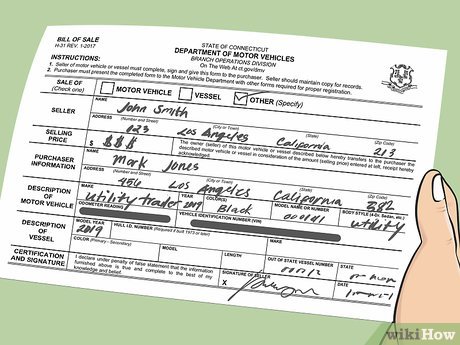 BILL OF SALE
H-31 REV. 1-2017
STATE OF CONNECTICUT
DEPARTMENT OF MOTOR VEHICLES
BRANCH OPERATIONS DIVISION
On The Web At ct.gov/dmv
INSTRUCTIONS:
1. Seller of motor vehicle or vessel must complete, sign and give this form to the purchaser. Seller should maintain copy for records.
2. Purchaser must present the completed form to the Motor Vehicle Department with other forms required for proper registration.
SALE OF (Check one) MOTOR VEHICLE VESSEL OTHER (Specify)
SELLER
NAME
John Smith
ADDRESS (Number and Street) (City or Town) (State) (Zip Code)
123 Los Angeles California 213
SELLING PRICE
$ $$$
The owner (seller) of this motor vehicle or vessel described below hereby transfers to the purchaser the
described motor vehicle or vessel in consideration of the amount (selling price) entered at left, receipt hereby
acknowledged.
PURCHASER INFORMATION
NAME
Mark Jones
ADDRESS (Number and Street) (City or Town) (State) (Zip Code)
456 Los Angeles California
DESCRIPTION OF MOTOR VEHICLE
MAKE YEAR COLOR(S) MODEL NAME OR NUMBER BODY STYLE (4-Dr. Sedan, etc.)
utility trader Black utility
ODOMETER READING VEHICLE IDENTIFICATION NUMBER (VIN)
DESCRIPTION OF VESSEL
MODEL YEAR HULL I.D. NUMBER (Required if built 1973 or later)
2019
COLOR (Primary - Secondary) MODEL LENGTH OUT OF STATE VESSEL NUMBER STATE
CERTIFICATION AND SIGNATURE
I declare under penalty of false statement that the information
furnished above is true and complete to the best of my
knowledge and belief.
SIGNATURE OF SELLER DATE
X
wikiHow